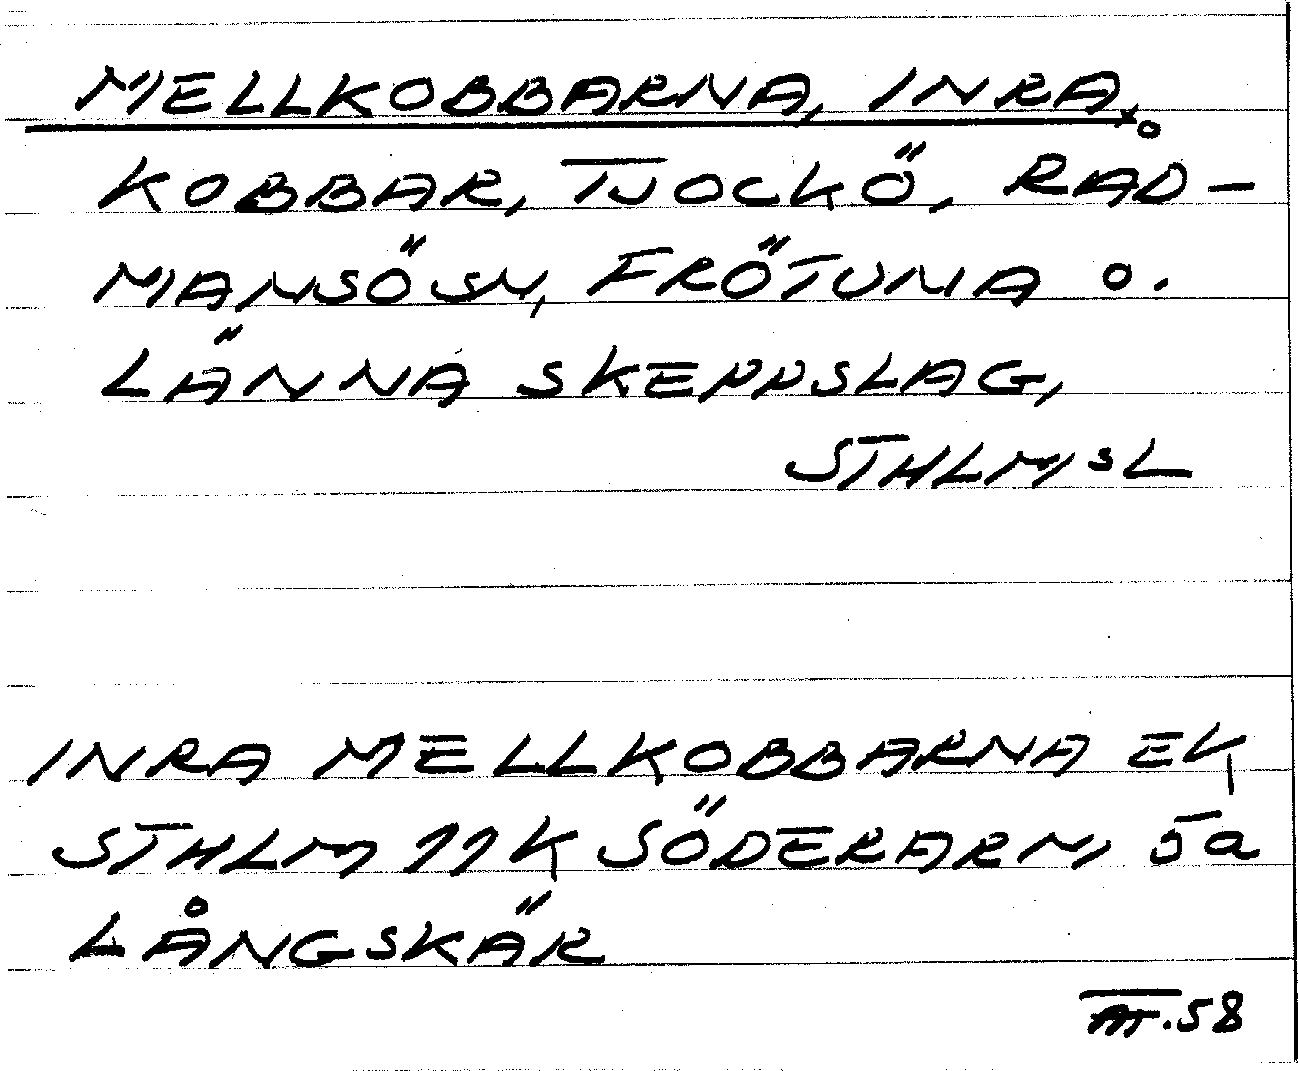 MELLKOBBARNA, INRA,
KOBBAR, TJOCKÖ, RÅD-
MANSÖ SN, FRÖTUNA O.
LÄNNA SKEPPSLAG,
STHLMSL
INRA MELLKOBBARNA EK
STHLM 11K SÖDERARM, 5a
LÅNGSKÄR
.58